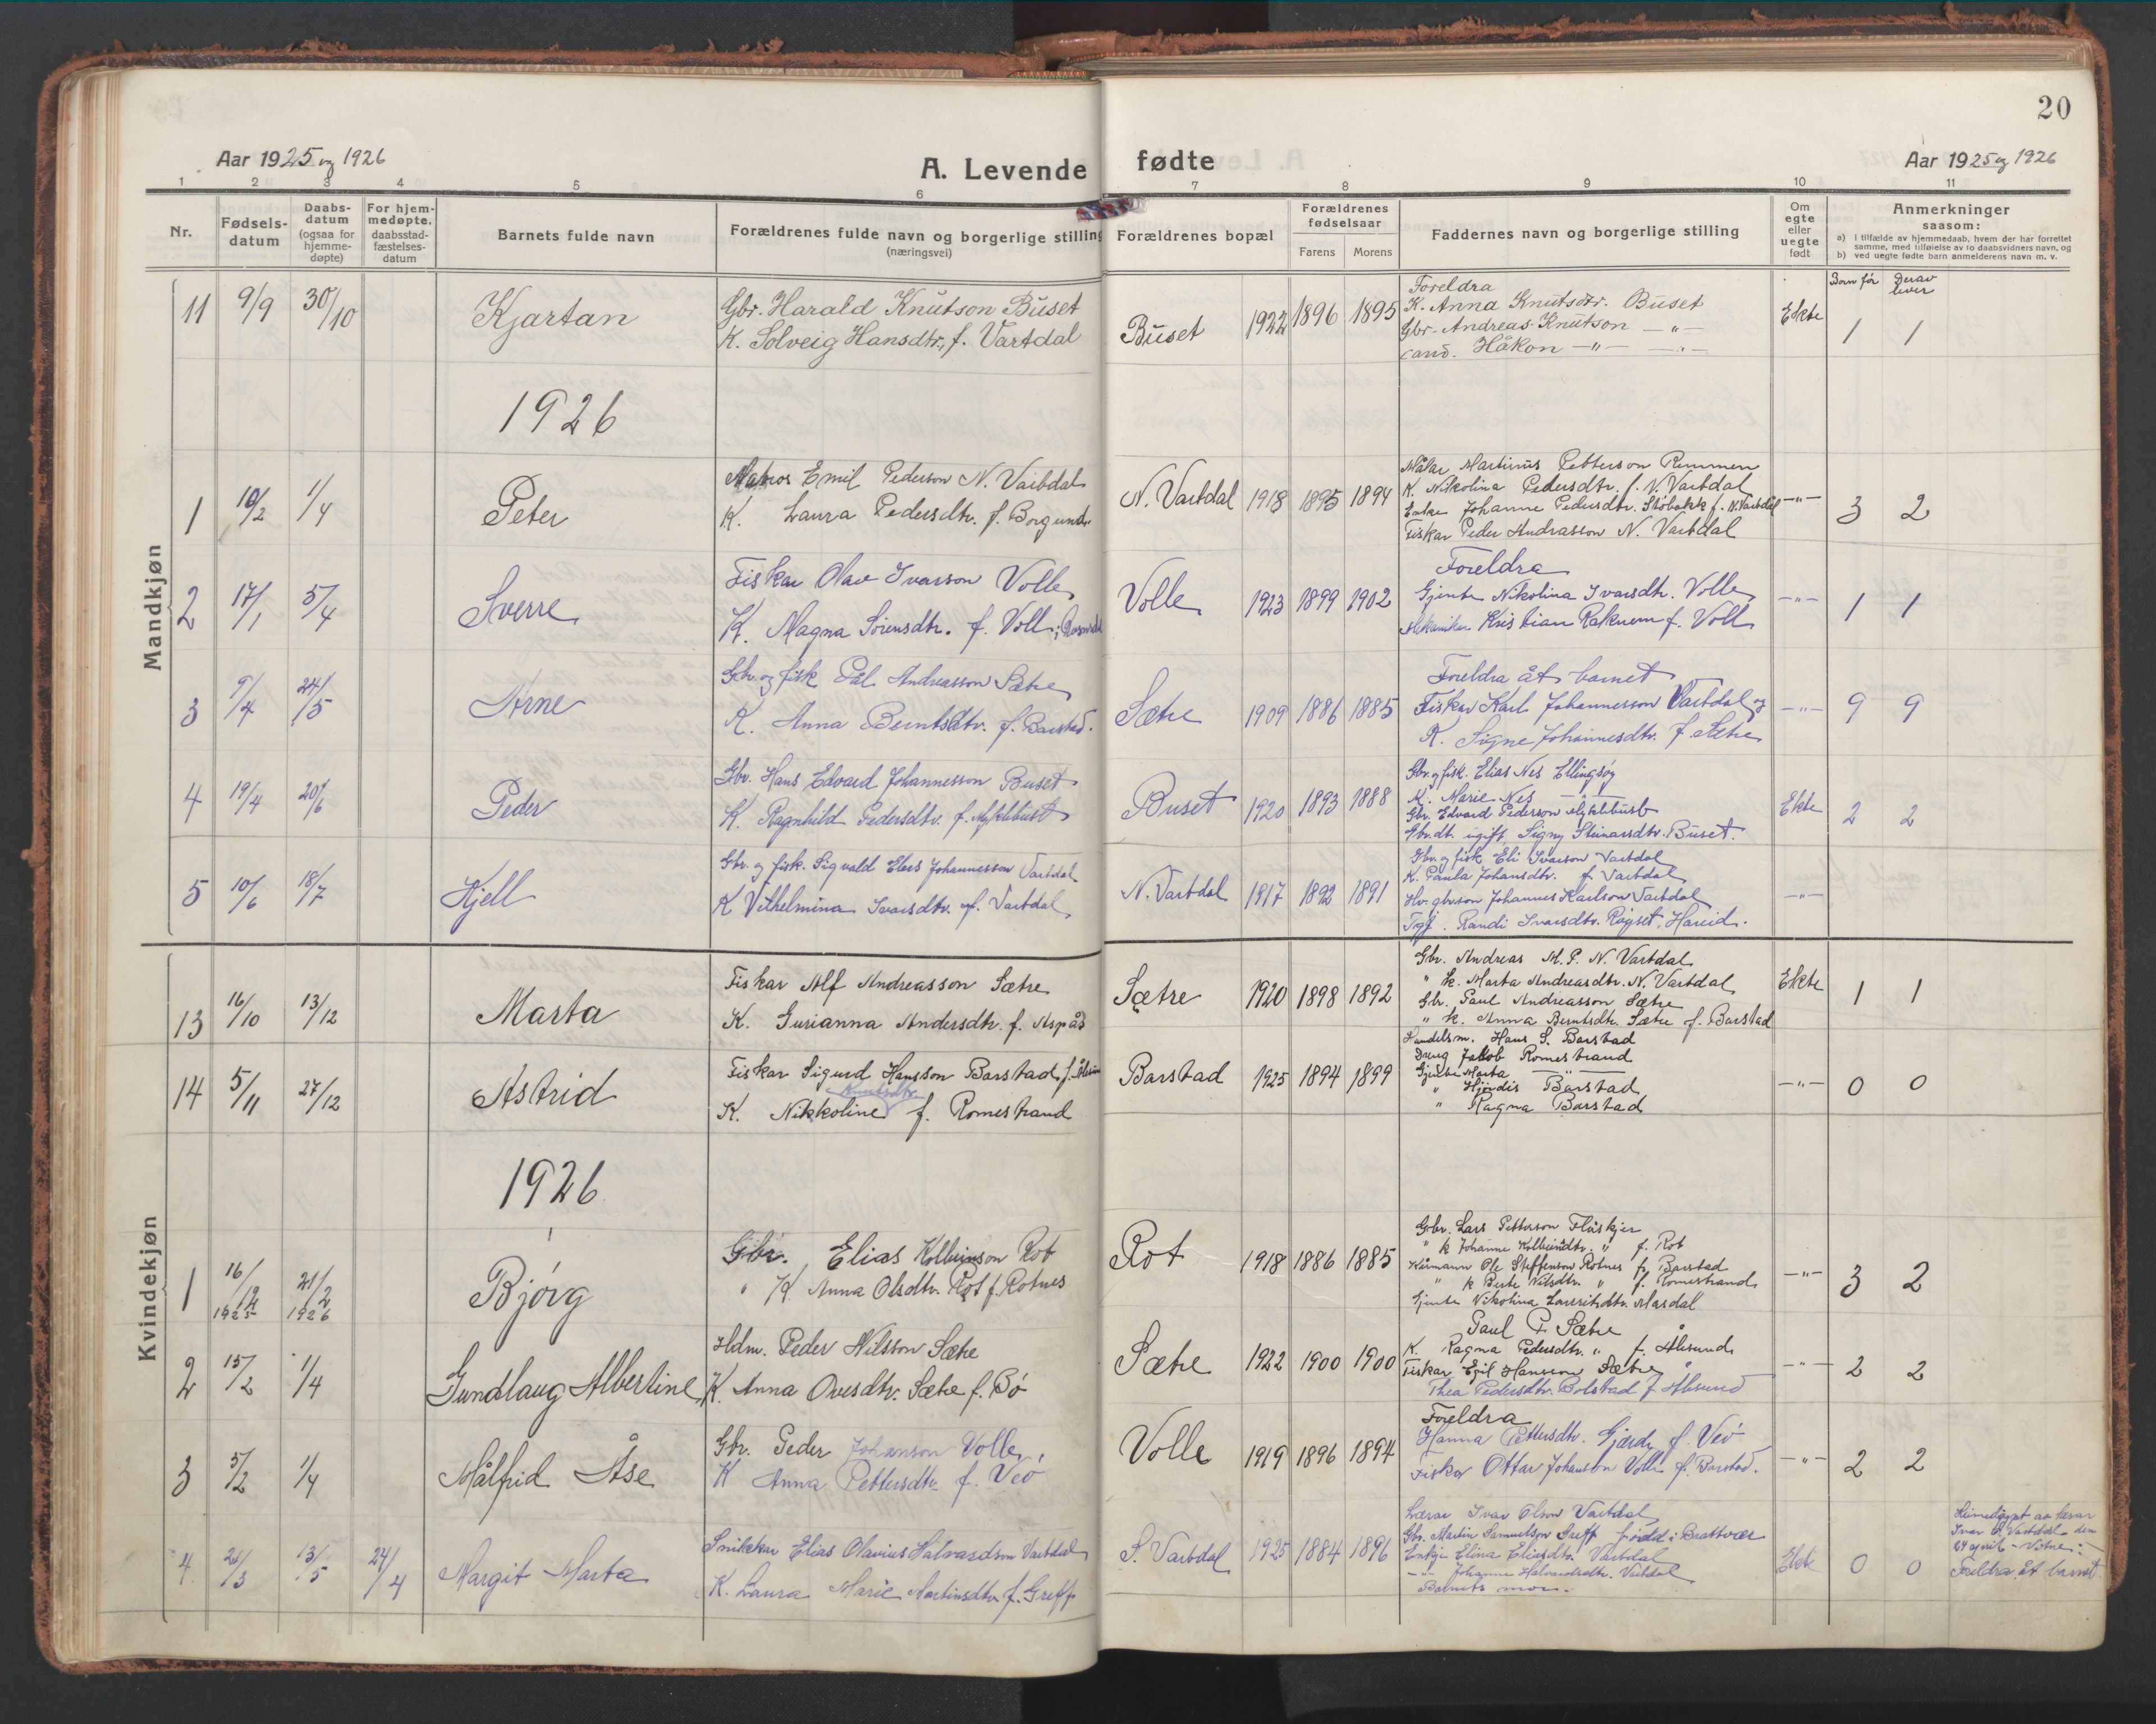 20
Aar 1925 og 1926
A. Levende fødte
Aar 1925 og 1926
1 2 3 4 5 6 7 8 9 10 11
Nr.
Fødsels-
datum
Daabs-
datum
(ogsaa for
hjemme-
døpte)
For hjem-
medøpte.
daabsstad-
fæstelses-
datum
Barnets fulde navn
Forældrenes fulde navn og borgerlige stilling
(næringsvei)
Forældrenes bopæl
Forældrenes
fødselsaar
Farens Morens
Faddernes navn og borgerlige stilling
Om
egte
eller
uegte
født
Anmerkninger
saasom:
a) I tilfælde av hjemmedaab, hvem der har forrettet
samme, med tilføielse av to daabsvidners navn, og
b) ved uegte fødte barn anmelderens navn m. v.
Mandkjøn
Born før Derav
lever
11 9/9 30/10 Kjartan
Gbr. Harald Knutson Buset
K. Solveig Hansdtr. f. Vartdal
Buset 1922 1896 1895
Foreldra
K. Anna Knutsdtr. Buset
Gbr. Andreas Knutson —"—
cand. Håkon —"— —"—
Ekte 1 1
1926
1 10/2 1/4 Peter
Matros Emil Pederson N. Vartdal
K. Laura Pedersdtr. f. Borgund
N. Vartdal 1918 1895 1894
Målar Martinus Petterson Remmen
K. Nikolina Pedersdtr. f. N. Vartdal
Enke Johanne Pedersdtr. Støbakk f. N. Vartdal
Fiskar Peder Andrasson N. Vartdal
—"— 3 2
2 17/1 5/4 Sverre
Fiskar Olav Ivarson Volle
K. Magna Sørensdtr. f. Voll i
Volle 1923 1899 1902
Foreldra
Gjente Nikolina Ivarsdtr. Volle
Mekaniker Kristian Raknem f. Voll
—"— 1 1
3 9/4 24/5 Arne
Gbr. og fisk. Pål Andreasson Sætre
K. Anna Berntsdtr. f. Barstad.
Sætre 1909 1886 1885
Foreldra åt barnet
Fiskar Karl Johannesson Vartdal og
K. Signe Johannesdtr. f. Sætre
—"— 9 9
4 19/4 20/6 Peder
Gbr. Hans Edvard Johannesson Buset
K. Ragnhild Pedersdtr. f. Myklebust
Buset 1920 1893 1888
Gbr. og fisk. Elias Nes Ellingsøy
K. Marie Nes —"—
Gbr. Edvard Pederson Myklebust
Gbr.dt. ugift Signy Steinarsdtr. Buset.
Ekte 2 2
5 10/6 18/7 Kjell
Gbr. og fisk. Sigvald Elias Johannesson Vartdal
K Vilhelmina Ivarsdtr. f. Vartdal
N. Vartdal 1917 1892 1891
Gbr. og fisk. Eli Ivarson Vartdal
K. Paula Johansdtr. f. Vartdal
Hv. gbrson Johannes Karlson Vartdal
Tgj. Randi Ivarsdtr. Røyset, Hareid.
—"—
Kvindekjøn
13 16/10 13/12 Marta
Fiskar Alf Andreasson Sætre
K. Gurianna Andersdtr. f. Aspås
Sætre 1920 1898 1892
Gbr. Andreas M. P. N. Vartdal
" k. Marta Andreasdtr. N. Vartdal
Gbr. Paul Andreasson Sætre
" k. Anna Berntsdtr. Sætre f. Barstad
Ekte 1 1
14 5/11 27/12 Astrid
Fiskar Sigurd Hansson Barstad
Knutsdtr.
K. Nikkoline f. Romestrand
Barstad 1925 1894 1899
Handelsm. Hans S. Barstad
Dreng Jakob Romestrand
Gjente Marta —"—
" Hjørdis Barstad
" Ragna Barstad
—"— 0 0
1926
1 16/12 1925 21/2 1926 Bjørg
Gbr. Elias Kolbeinson Rot
" K Anna Olsdtr. Rot f. Rotnes
Rot 1918 1886 1885
Gbr. Lars Petterson Flåskjer
" k Johanne Kolbeinsdtr. " f. Rot
Kårmann Ole Steffenson Rotnes f. Barstad
" k Berte Nilsdtr. " f. Romestrand
Gjente Nikolina Lauritsdtr. Masdal
—"— 3 2
2 15/2 1/4 Gundlaug Albertine
Hdm. Peder Nilsson Sætre
K Anna Ovesdtr. Sætre f. Bø
Sætre 1922 1900 1900
Paul P. Sætre
K. Ragna Pedersdtr. " f. Ålesund
Fiskar Egil Hansson Sætre
Thea Pedersdtr. Bolstad f. Ålesund
—"— 2 2
3 5/2 1/4 Målfrid Åse
Gbr. Peder Johanson Volle,
K Anna Pettersdtr. f. Veö
Volle 1919 1896 1894
Foreldra
Hanna Pettersdtr. Gjerde f. Veö
Fiskar Ottar Johanson Volle f. Barstad.
—"— 2 2
4 21/3 13/5 24/4 Margit Marta
Snikkar Elias Olavius Halvardson Vartdal
K. Laura Marie Martinsdtr f. Greff
S. Vartdal 1925 1884 1896
Lærar Ivar Olson Vartdal
Gbr. Martin Samuelson Greff født i Brattvær
Enkje Elina Eliasdtr. Vartdal
—"— Johanne Halvardsdtr. Vartdal
Barnets mor.
Ekte 0 0
Heimedøypt av lærar
Ivar O. Vartdal den
24 april – Vitne:
Foreldra åt barnet